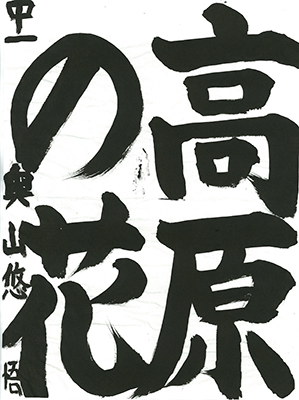 高原
の花
中一 奥山悠悟